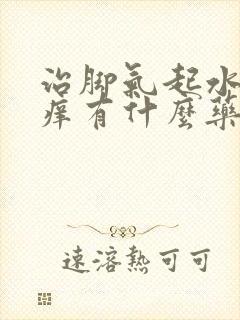 治脚氣起水
痒有什麼藥
速溶熱可可